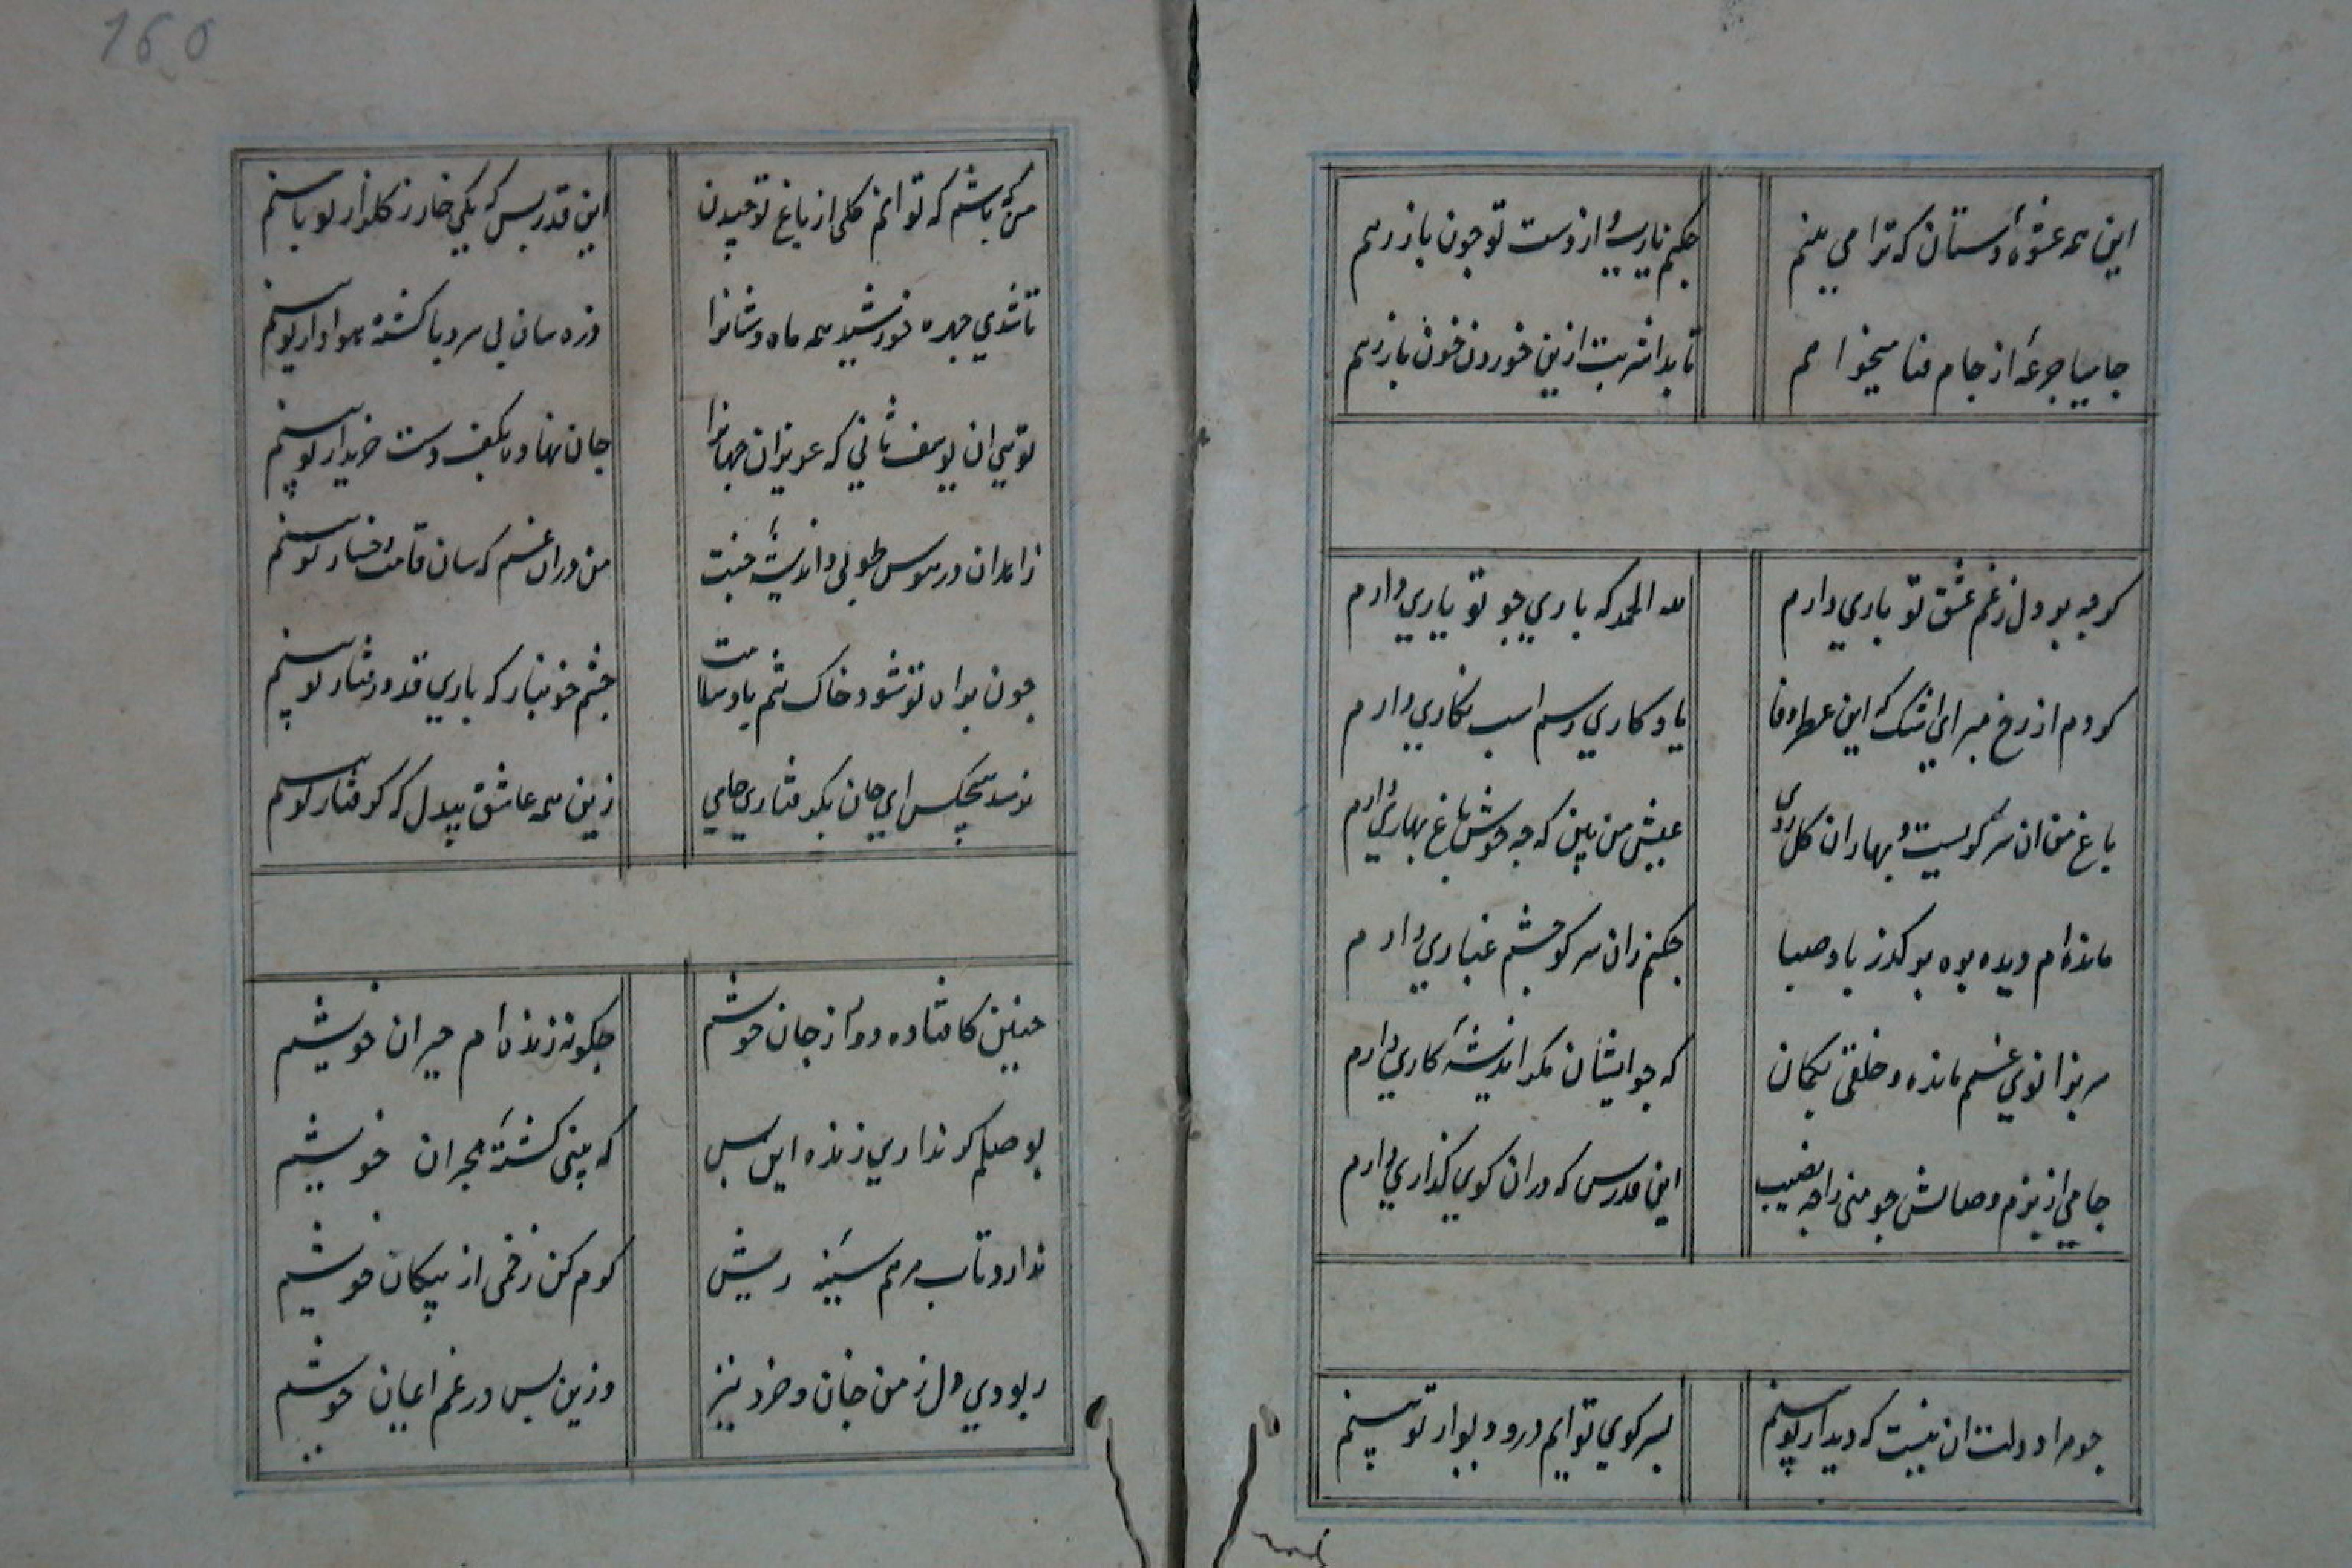 این همه عشوه دستان که ترا می بینم
چکنم یارب و از دست تو چون باز رهم
جامیا جرعه از جام فنا میخواهم
تا بدان شربت ازین خوردن خون باز رهم
کرچه بر دل ز غم عشق تو باری دارم
لله الحمد که باری چو تو یاری دارم
کردم از رخ مبر ای اشک که این عطر وفا
یادکاری ز سم اسب نکاری دارم
باغ من آن سر کویست و بهاران کل روی
عیش من بین که چه خوش باغ و بهاری دارم
مانده ام دیده بره بر کذر باد صبا
چکنم زان سر کو چشم غباری دارم
سر بزانوی غم مانده و خلقی بکمان
که چو ایشان مکر اندیشه کاری دارم
جامی از بزم وصالش چو منی را چه نصیب
این قدر بس که دران کوی کذاری دارم
چو مرا دولت آن نیست که دیدار تو بینم
بسر کوی تو ایم در و دیوار تو بینم
من که باشم که توانم کلی از باغ تو چیدن
این قدر بس که یکی خار ز کلزار تو بینم
تا شدی چهره خورشید همه ماه وشانرا
ذره سان بی سر و پا کشته هوادار تو بینم
تویی آن یوسف ثانی که عزیزان جهانرا
جان نهاده بکف دست خریدار تو بینم
زاهدان در هوس طوبی و اندیشه جنت
من دران غم که سان قامت و رخسار تو بینم
چون براه تو شود خاک تنم باد سلامت
چشم خونبار که باری قد و رفتار تو بینم
نرسد هیچکس ای جان بکرفتاری جامی
زین همه عاشق بیدل که کرفتار تو بینم
چنین کافتاده دور از جان خویشم
چکونه زنده ام حیران خویشم
بوصلم کر نداری زنده این بس
که بینی کشته هجران خویشم
ندارد تاب مرهم سینه ریش
کرم کن زخمی از پیکان خویشم
ربودی دل ز من جان و خرد نیز
وزین بس در غم ایمان خویشم
160